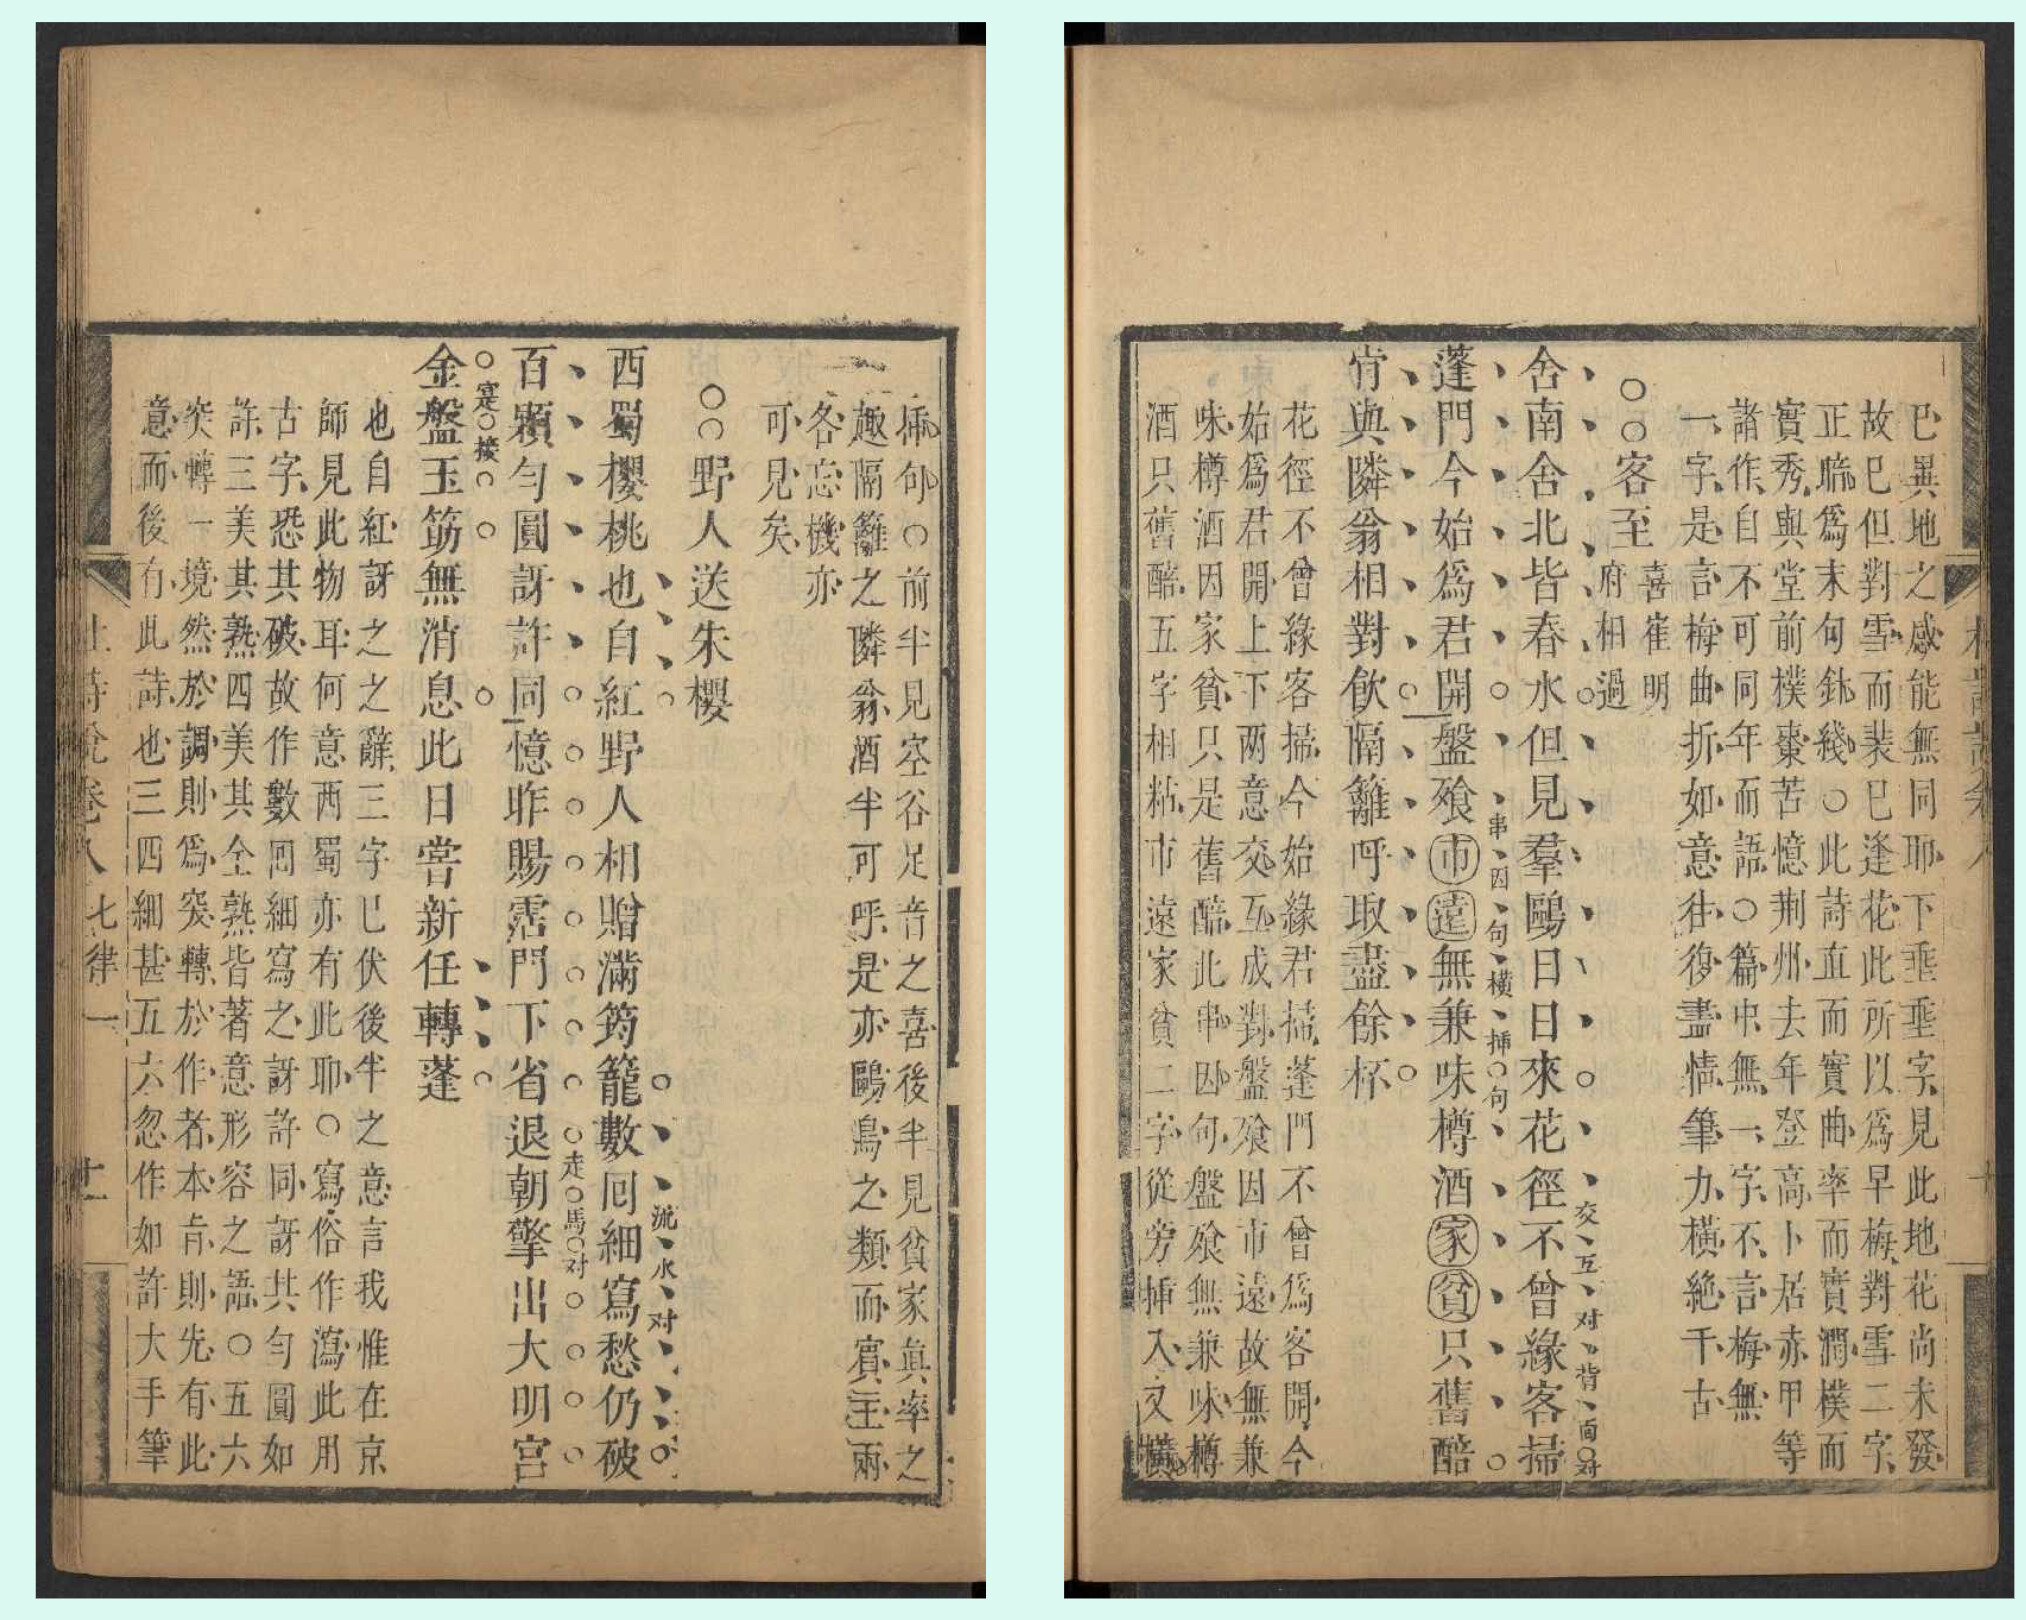 已異地之感能無同耶下垂垂字見此地花尚未發
故已但對雪而裴已逢花此所以爲早梅對雪二字
正賑爲末句鈥綫○此詩直而實曲率而實潤樸而
實秀與堂前樸棗苦憶荆州去年登高卜居赤甲等
諸作自不可同年而語○篇中無一字不言梅無
一字是言梅曲折如意往復盡情筆力橫絶千古
○○客至
喜崔明
府相過
舍南舍北皆春水但見羣鷗日日來花徑不曾緣客掃
交互对背面对
蓬門今始爲君開盤飧市遠無兼味樽酒家貧只舊醅
串因句橫揷句
肯與隣翁相對飲隔籬呼取盡餘杯
花徑不曾緣客掃今始緣君掃蓬門不曾爲客開今
始爲君開上下两意交互成對盤飧因市遠故無兼
味樽酒因家貧只是舊醅此串因句盤飧無兼味樽
酒只舊醅五字相粘市遠家貧二字從旁揷入又橫
揷句○前半見空谷足音之喜後半見貧家眞率之
趣隔籬之隣翁酒半可呼是亦鷗鳥之類而賓主兩
各忘機亦
可見矣
○○野人送朱櫻
西蜀櫻桃也自紅野人相贈滿筠籠數囘細寫愁仍破
流水对
百顆勻圓訝許同憶昨賜霑門下省退朝擎出大明宮
走馬对
金盤玉筯無消息此日嘗新任轉蓬
寔接
也自紅訝之之辭三字已伏後半之意言我惟在京
師見此物耳何意西蜀亦有此耶○寫俗作瀉此用
古字恐其破故作數囘細寫之訝許同訝其勻圓如
許三美其熟四美其全熟皆著意形容之語○五六
突轉一境然於調則爲突轉於作者本肯則先有此
意而後有此詩也三四細甚五六忽作如許大手筆
杜詩說卷八 七律一 十一